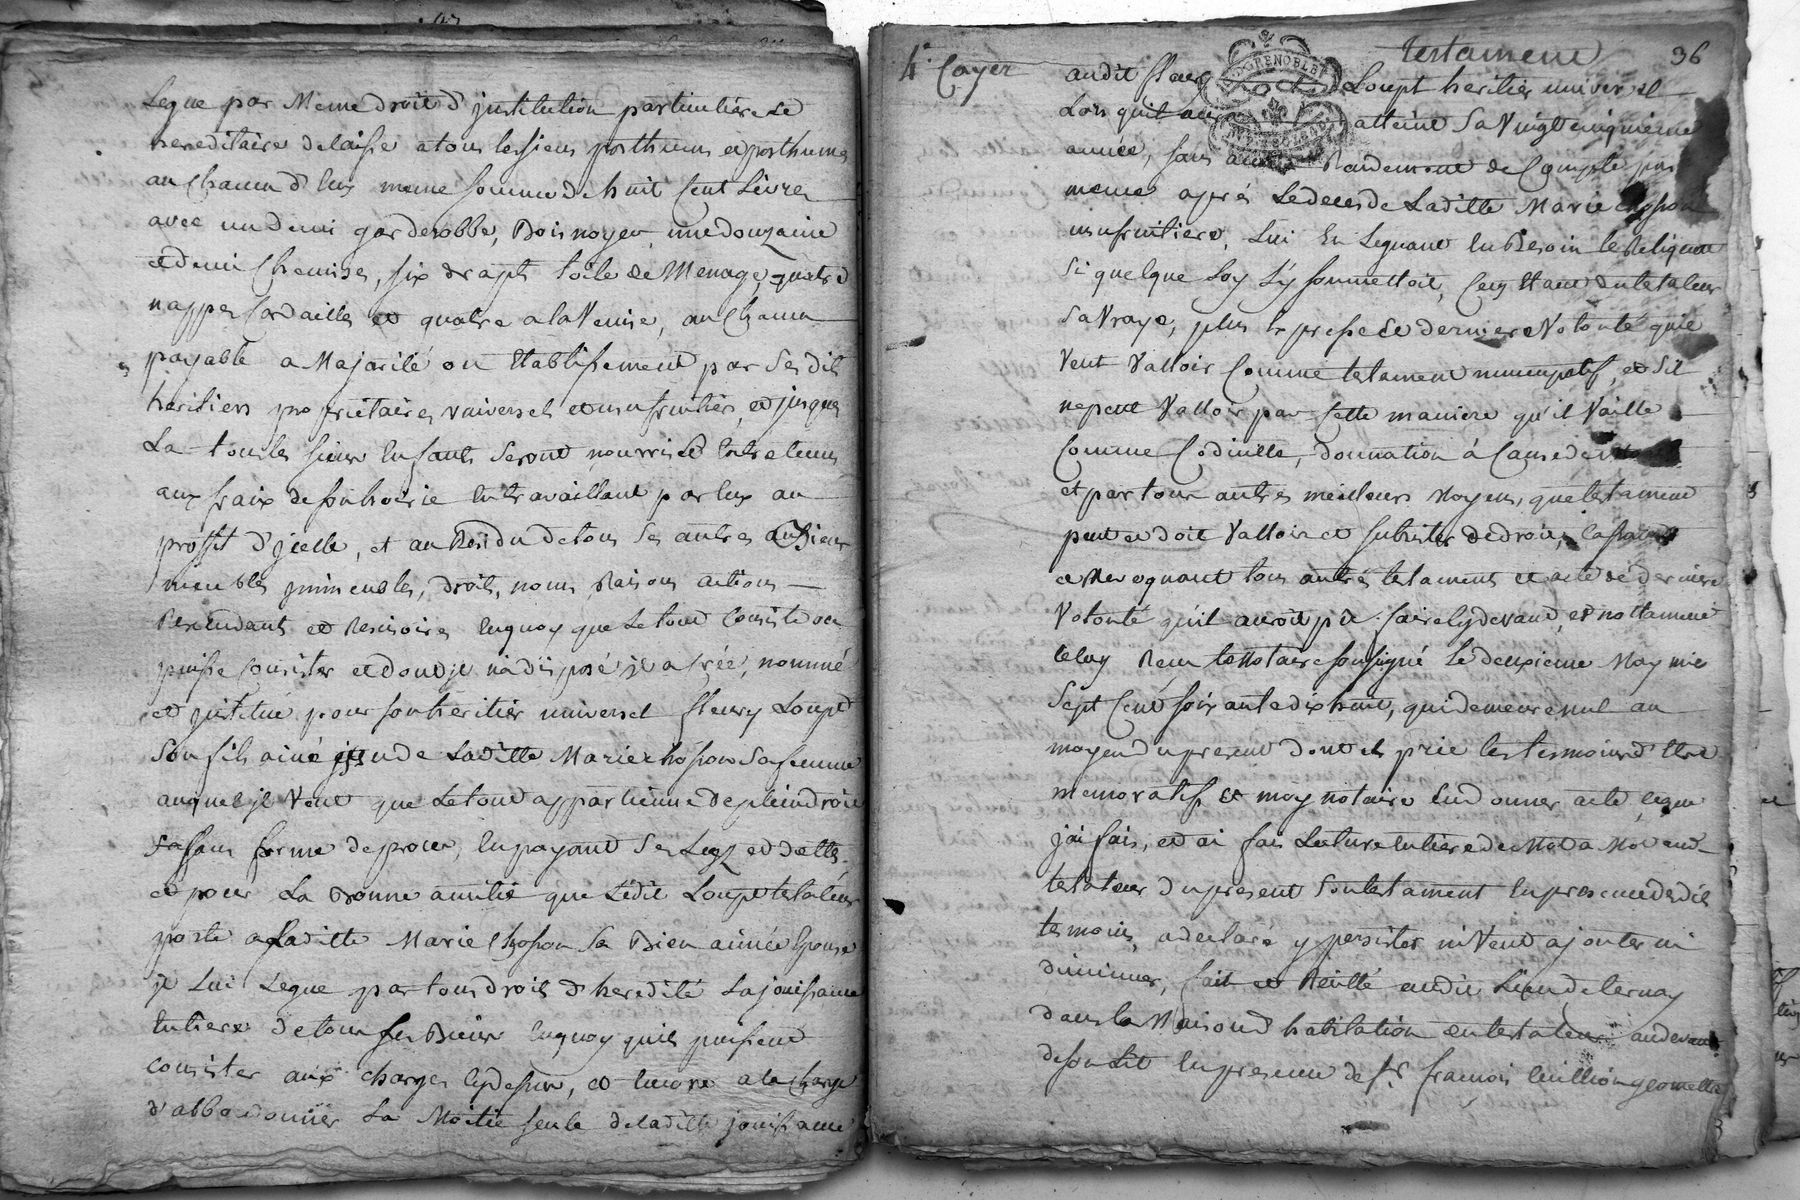 Legue par meme droit d'institution particulière et
hereditaire delaisse a tous les siens posthumes et posthumes
au chacun d'eux meme somme de huit cent Livres
avec un demi garderobbe, Bois noyer, une douzaine
et demi Chemises, six draps toile de Menage, quatre
nappes Cordailles et quatre a la Venise, au Chacun
payable a Majorité ou Etablissement par ses dits
heritiers proprietaires universels et usufruitier, et jusques
La tous les siens Enfants seront nourris et Entretenus
aux fraix de son hoirie En travaillant par Eux au
proffit d'jcelle, et au Residu de tous ses autres Biens
meubles jmmeubles, droits, noms Raisons actions
Rescindants et Rescisoires Enquoy que Le tout Consiste ou
puisse Consister et dont jl n'a disposé jl a créé, nommé
et jnstitué pour son heritier universel fleury Loupt
son fils ainé et de Laditte Marie chosson sa femme
auquel jl Veut que Le tout appartienne de plein droit
sans forme de proces, En payant ses Legs et dettes
et pour La Bonne amitié que Ledit Loupt testateur
porte a Laditte Marie Chosson sa Bien aimée Epouse
jl Lui Legue par tous droits d'heredité La jouissance
Entiere de tous ses Biens Enquoy quils puissent
consister aux charges cy dessus, et Encore a la charge
d'abbandonner La Moitié seule de laditte jouissance
4e Cayer
testament
36
audit fleury Loupt heritier universel
Lors quil aura atteint sa Vingt cinquieme
année, sans aucun Rendement de Compte pas
meme après Le deces de Laditte Marie chosson
usufruitiere, Lui En Leguant En Besoin le Reliquat
si quelque Loy s'y soumettoit, Cecy Etant du testateur
sa Vraye, plus Expresse et derniere Volonté qu'il
Veut Valloir Comme testament nuncupatif, et s'il
ne peut Valloir par cette maniere qu'il Vaille
Comme Codicille, donnation à Cause de mort
et par tous autres meilleurs moyens, que testament
peut et doit Valloir et subsister de droit, Cassant
et Revoquant tous autres testaments et acte de derniere
Volonté qu'il auroit pû faire cy devant, et nottament
celuy Recu Le Notaire soussigné Le deuxieme May mil
sept Cent soixante dix huit, qui demeure nul au
moyen du present dont il prie les temoins d'Etre
memoratifs et moy notaire En donner acte, ce que
j'ai fais, et ai fais Lecture Entiere de Mot a Mot audit
testateur du present son testament En presence desdits
temoins, a declaré y persister ni Veut ajouter ni
diminuer, fait et Recitté audit Lieu de ternay
dans La Maison d'habitation du testateur au devant
de son Lit En presence de sr francois Cuillion geometre